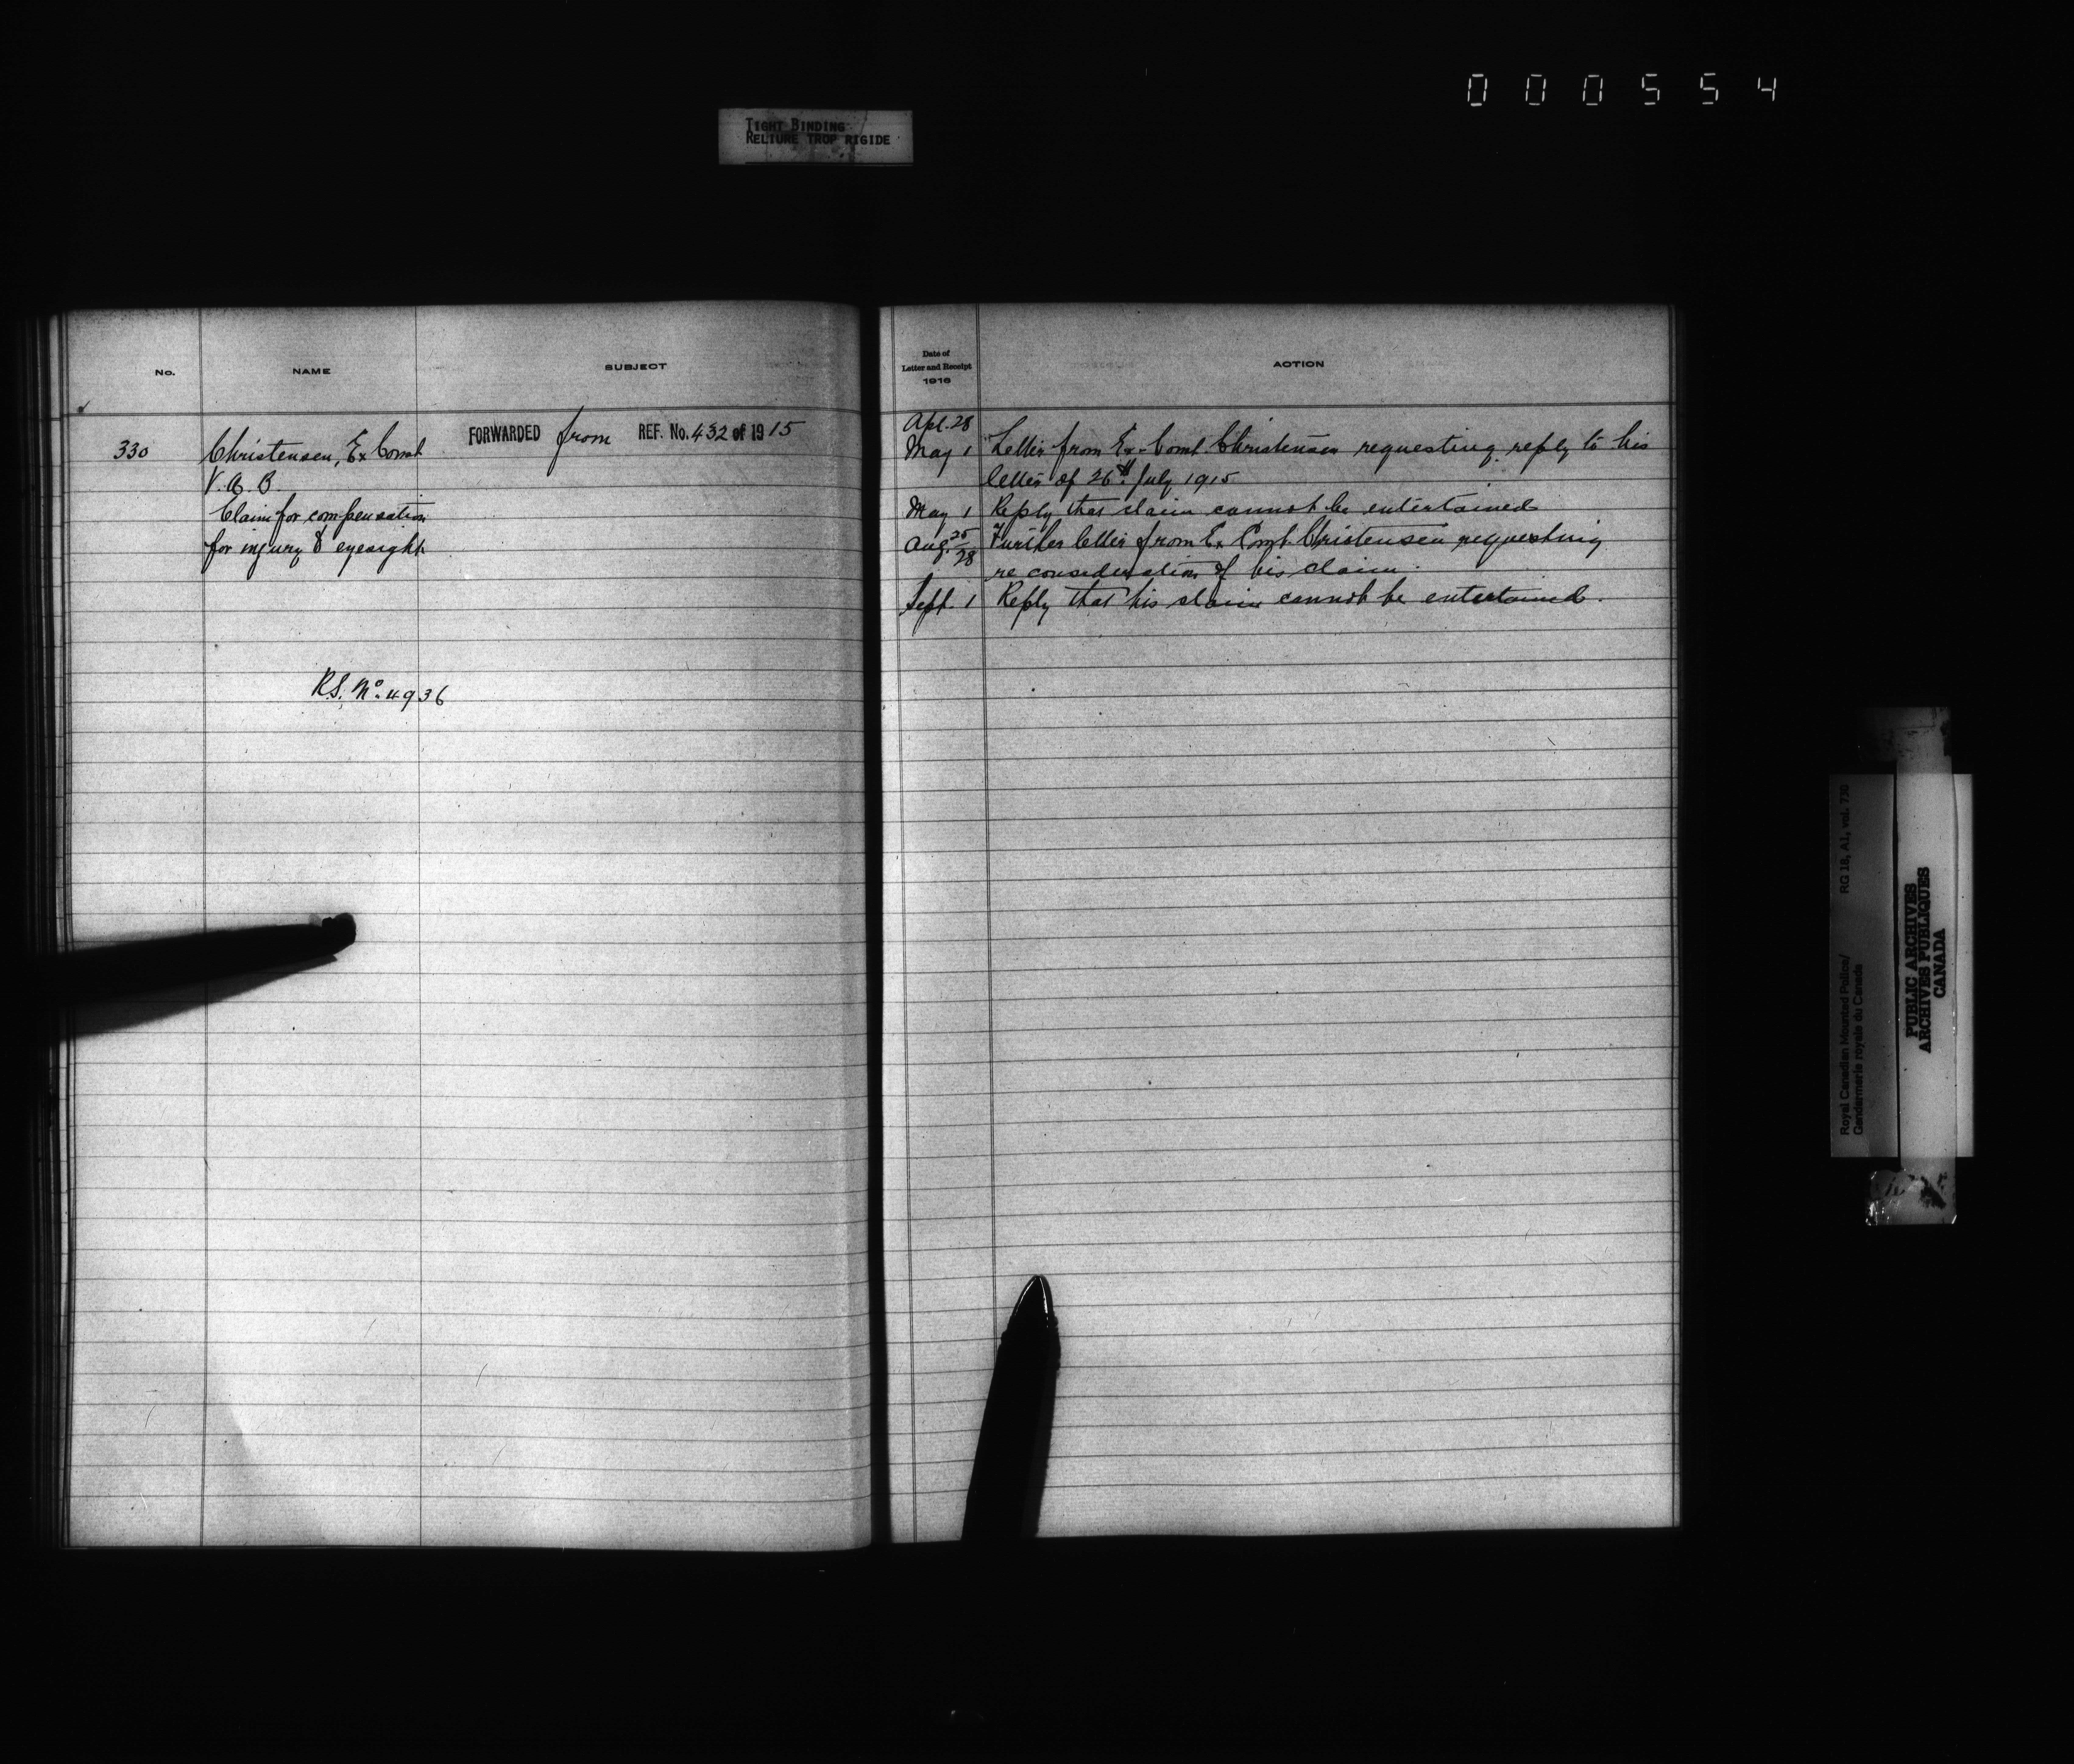 000554
TIGHT BINDING
RELIURE TROP RIGIDE
No.
NAME
SUBJECT
330
Christensen, Ex Const
V. A. B.
Claim for compensation
for injury to eyesight
FORWARDED from REF. No. 432 of 1915
R.S. No. 4936
Date of
Letter and Receipt
1916
ACTION
Apl. 28
May 1 Letter from Ex-Const Christensen requesting reply to his
letter of 26th July 1915
May 1 Reply that claim cannot be entertained
Aug. 25/28 Further letter from Ex Const. Christensen requesting
re consideration of his claim.
Sept. 1 Reply that his claim cannot be entertained.
Royal Canadian Mounted Police/
Gendarmerie royale du Canada
RG 18, A1, vol. 730
PUBLIC ARCHIVES
ARCHIVES PUBLIQUES
CANADA